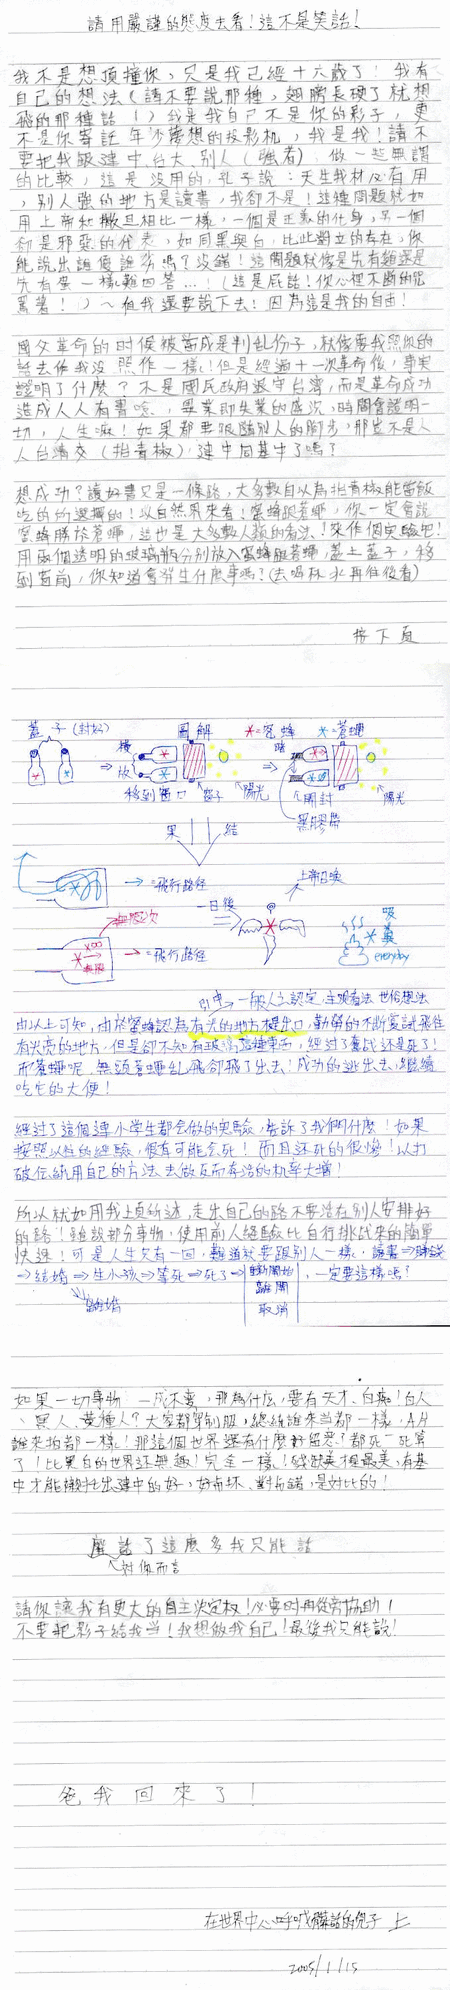 請用嚴謹的態度去看!這不是笑話!
我不是想頂撞你,只是我已經十六歲了!我有
自己的想法(請不要說那種,翅膀長硬了就想
飛的那種話!)我是我自己不是你的影子,更
不是你寄託年少夢想的投影机,我是我!請不
要把我跟建中.台大.別人(強者)做一些無謂
的比較,這是沒用的,孔子說:天生我材必有用
,別人強的地方是讀書,我卻不是!這種問題就如
用上帝和撒旦相比一樣,一個是正義的化身,另一個
卻是邪惡的代表,如同黑與白,比此對立的存在,你
能說出誰優誰劣嗎?沒錯!這問題就像是先有雞還是
先有蛋一樣難回答...!(這是屁話!你心裡不斷的咒
罵著!)~但我還要說下去!因為這是我的自由!
國父革命的时候被當成是判乱份子,就像要我照你的
話去作我沒照作一樣!但是經過十一次革命後,事实
證明了什麼?不是國民政府退守台灣,而是革命成功
造成人人有書唸,畢業即失業的盛況,時間會證明一
切,人生嘛!如果都要跟隨別人的腳步,那豈不是人
人台清交(抬青椒),建中同基中了嗎?
想成功?讀好書只是一條路,大多數自以為抬青椒能當飯
吃的所選擇的!以自然界來看!蜜蜂跟蒼蠅,你一定會說
蜜蜂勝於蒼蠅,這也是大多數人類的看法!來作個实驗吧!
用兩個透明的玻璃瓶分別放入蜜蜂跟蒼蠅,蓋上蓋子,移
到窗前,你知道會發生什麼事嗎?(去喝杯水再往後看)
接下頁
蓋子(封好)
圖解
*=蜜蜂 *=蒼蠅
橫放
移到窗口
窗子
陽光
開封
黑膠帶
陽光
結果
→=飛行路徑
一日後
上帝召喚
無限次
→=飛行路徑
吸糞
everyday
引申→一般人之認定.主观看法.世俗想法
由以上可知,由於蜜蜂認為有光的地方才是出口,勤勞的不断嘗試飛往
有光亮的地方,但是卻不知有玻璃這種東西,經过了奮战还是死了!
而蒼蠅呢.無頭蒼蠅乱飛卻飛了出去!成功的逃出去,繼續
吃它的大便!
經过了這個連小学生都会做的实驗,告訴了我們什麼!如果
按照以往的經驗,很有可能会死!而且还死的很慘!以打
破传統用自己的方法去做反而存活的机率大增!
所以就如用我上頁所述,走出自己的路不要活在別人安排好
的路!雖說部分事物,使用前人經驗比自行挑战來的簡單
快速!可是人生只有一回,難道就要跟別人一樣,讀書⇒賺錢
⇒結婚⇒生小孩⇒等死⇒死了⇒ 重新開始 離開 取消 ,一定要這樣嗎?
離婚
如果一切事物一成不变,那為什么,要有天才、白痴!白人
、黑人、黃種人?大家都穿制服,總統誰來当都一樣,AV
誰來拍都一樣!那這個世界還有什麼好留恋?都死一死算
了!比黑白的世界还無趣!完全一樣!殘缺美才是最美,有基
中才能襯托出建中的好,好而坏、對而錯,是对比的!
廢話了這麼多我只能話
對你而言
請你讓我有更大的自主决定权!必要时再從旁協助!
不要把影子給我当!我想做我自己!最後我只能說!
爸我回來了!
在世界中心呼喊髒話的兒子 上
2005/1/15